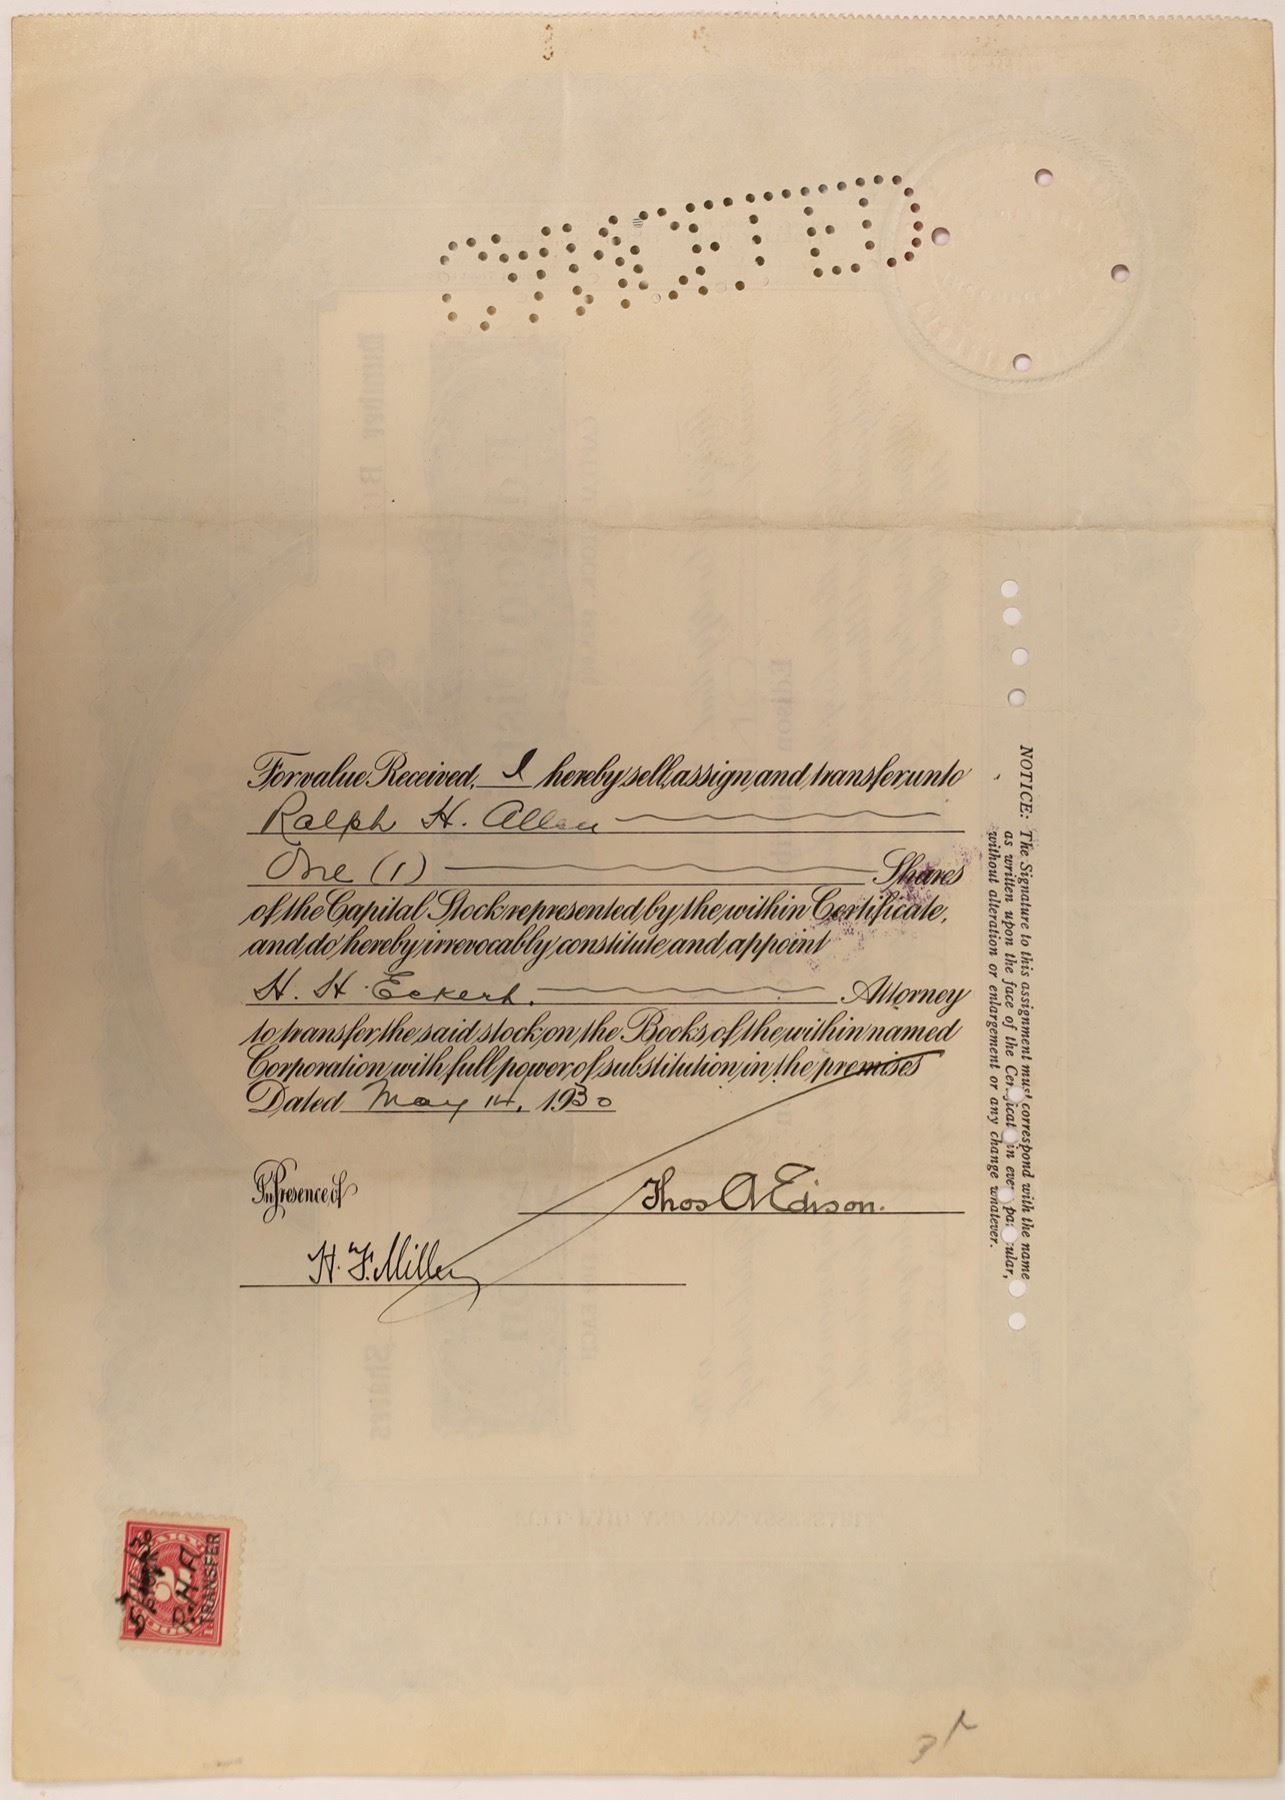 For value Received, I hereby sell, assign and transfer unto
Ralph H. Allen
One (1) Shares
of the Capital Stock represented by the within Certificate,
and do hereby irrevocably constitute and appoint
H. H. Eckert. Attorney
to transfer the said stock on the Books of the within named
Corporation with full power of substitution in the premises
Dated May 14, 1930
In Presence of
Thos A Edison.
H. F. Miller
NOTICE: The Signature to this assignment must correspond with the name
as written upon the face of the Certificate in every particular,
without alteration or enlargement or any change whatever.
R.H.A.
TRANSFER